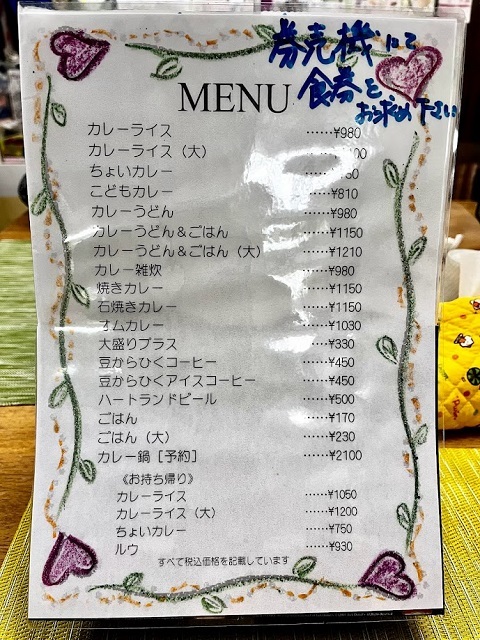 券売機にて
食券を
お求め下さい
MENU
カレーライス ……¥980
カレーライス（大）
ちょいカレー
こどもカレー ……¥810
カレーうどん ……¥980
カレーうどん＆ごはん ……¥1150
カレーうどん＆ごはん（大） ……¥1210
カレー雑炊 ……¥980
焼きカレー ……¥1150
石焼きカレー ……¥1150
オムカレー ……¥1030
大盛りプラス ……¥330
豆からひくコーヒー ……¥450
豆からひくアイスコーヒー ……¥450
ハートランドビール ……¥500
ごはん ……¥170
ごはん（大） ……¥230
カレー鍋［予約］ ……¥2100
《お持ち帰り》
カレーライス ……¥1050
カレーライス（大） ……¥1200
ちょいカレー ……¥750
ルウ ……¥930
すべて税込価格を記載しています